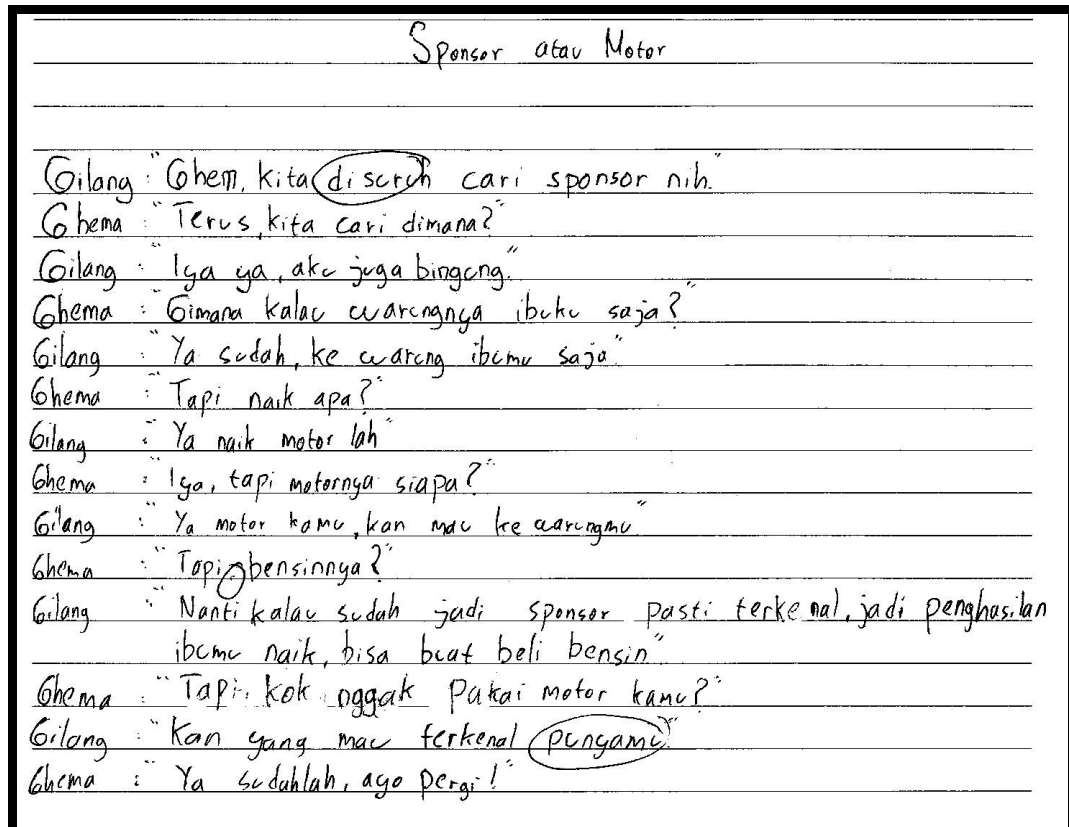 Sponsor atau Motor
Gilang : "Ghem, kita disuruh cari sponsor nih."
Ghema : "Terus, kita cari dimana?"
Gilang : "Iya ya, aku juga bingung."
Ghema : "Gimana kalau warungnya ibuku saja?"
Gilang : "Ya sudah, ke warung ibumu saja"
Ghema : "Tapi naik apa?"
Gilang : "Ya naik motor lah"
Ghema : "Iya, tapi motornya siapa?"
Gilang : "Ya motor kamu, kan mau ke warungmu"
Ghema : "Tapi, bensinnya?"
Gilang : "Nanti kalau sudah jadi sponsor pasti terkenal, jadi penghasilan
ibumu naik, bisa buat beli bensin"
Ghema : "Tapi, kok nggak pakai motor kamu?"
Gilang : "Kan yang mau terkenal punyamu"
Ghema : "Ya sudahlah, ayo pergi!"